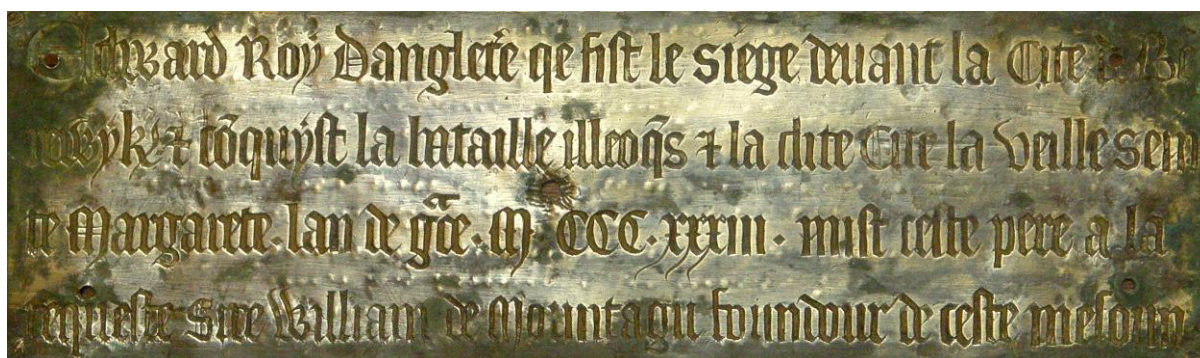 Edward Roy Dangleťe qe fist le siege devant la Cite de Be
rwyk ⁊ cōquyst la bataille illeoq̄s ⁊ la dite Cite la veille sein
te Margarete · lan de gͣce · M CCC · xxxiii · mist ceste pere a la
requeste Sire William de Mountagu foundour de ceste mesoun